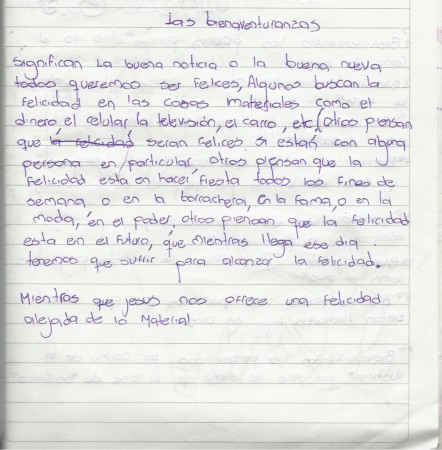 las bienaventuranzas
significan la buena noticia o la buena nueva
todos queremos ser felices, Algunos buscan la
felicidad en las cosas materiales como el
dinero el celular la televisión, el carro, etc, otros piensan
que la felicidad seran felices si estan con alguna
persona en particular otros piensan que la
felicidad esta en hacer fiesta todos los fines de
semana o en la borrachera, En la Fama, o en la
moda, en el poder, otros piensan que la felicidad
esta en el futuro, que mientras llega ese dia
tenemos que sufrir para alcanzar la felicidad.
Mientras que jesus nos ofrece una felicidad
alejada de lo Material